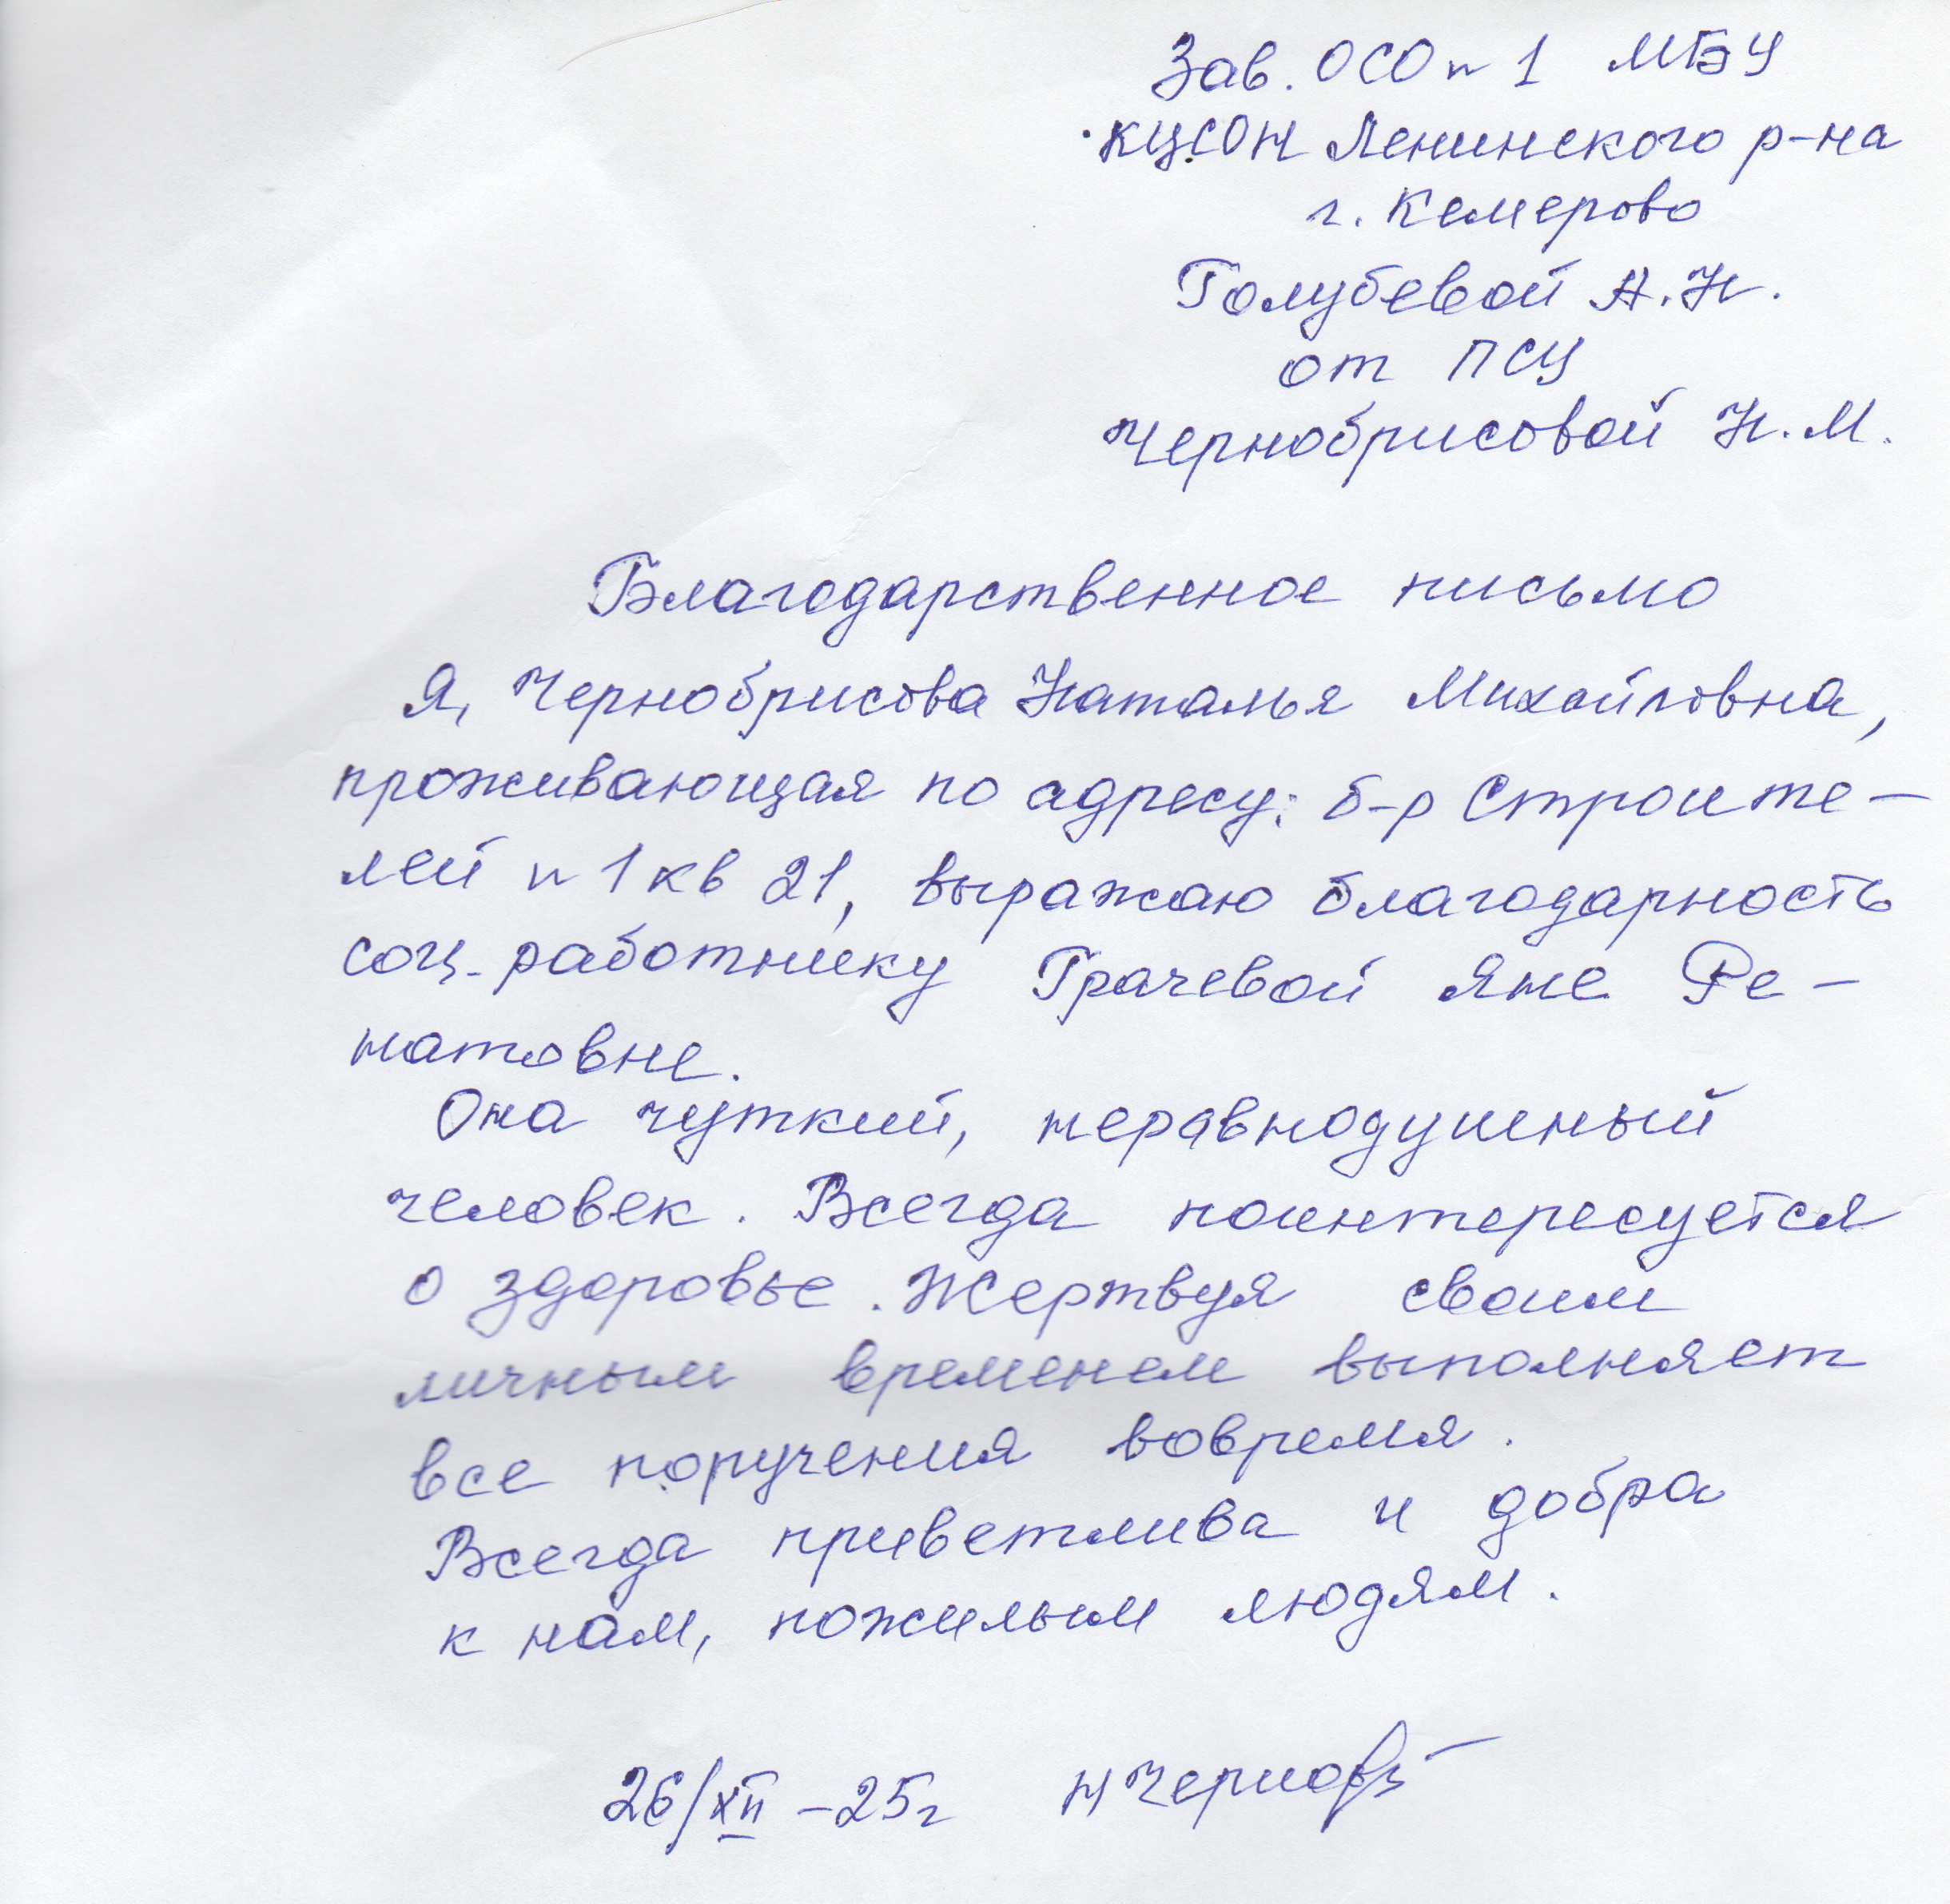 Зав. ОСО № 1 МБУ
КЦСОН Ленинского р-на
г. Кемерово
Голубевой А.Н.
от ПСУ
Чернобрисовой Н.М.
Благодарственное письмо
Я, Чернобрисова Наталья Михайловна,
проживающая по адресу: б-р Строите-
лей № 1 кв 21, выражаю благодарность
соц. работнику Грачевой Яне Ре-
натовне.
Она чуткий, неравнодушный
человек. Всегда поинтересуется
о здоровье. Жертвуя своим
личным временем выполняет
все поручения вовремя.
Всегда приветлива и добра
к нам, пожилым людям.
26/XII -25г